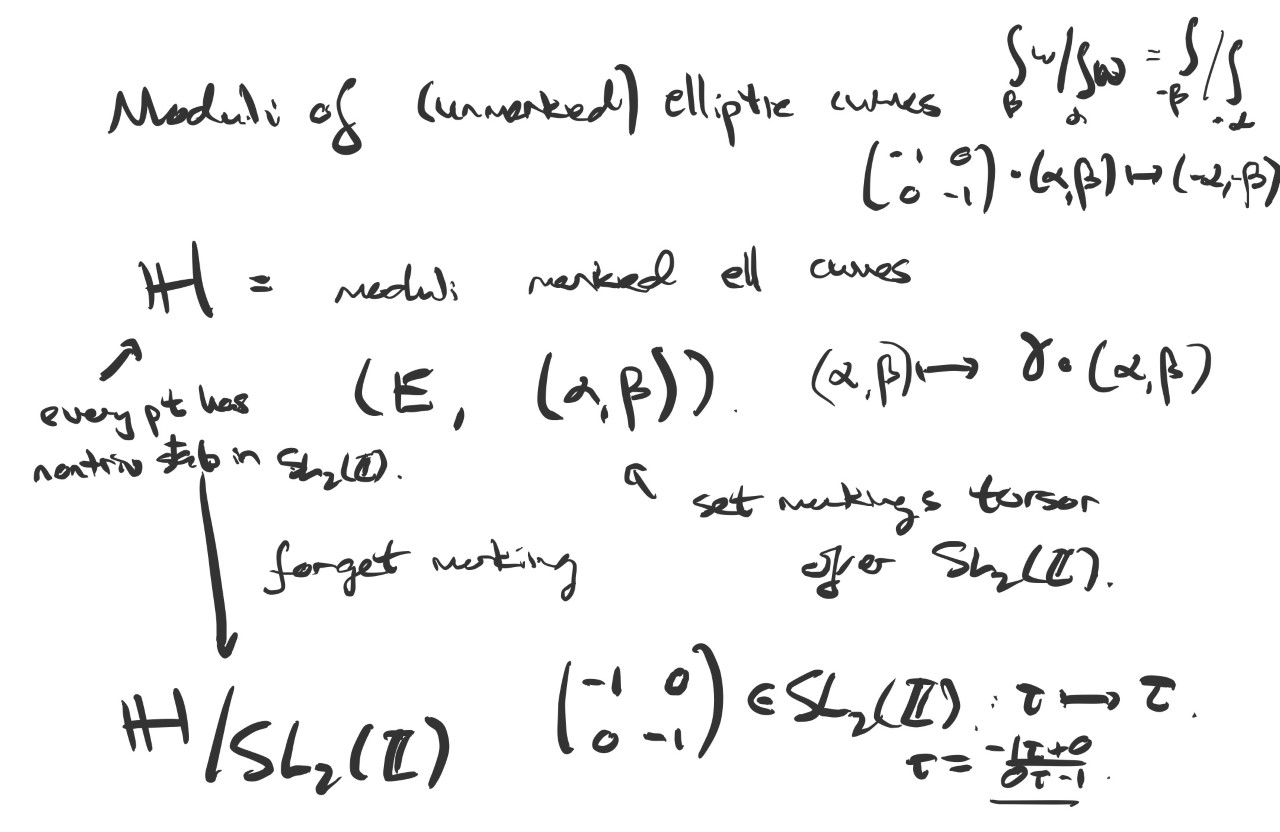 Moduli of (unmarked) elliptic curves
∫_β ω / ∫_α ω = ∫_{-β} / ∫_{-α}
(-1 0; 0 -1) · (α,β) ↦ (-α,-β)
ℍ = moduli marked ell curves
(E, (α,β)). (α,β) ↦ γ·(α,β)
every pt has
nontriv stab in SL₂(ℤ).
set markings torsor
over SL₂(ℤ).
forget marking
ℍ/SL₂(ℤ)
(-1 0; 0 -1) ∈ SL₂(ℤ). : τ ↦ τ.
τ = (-1τ+0)/(0τ-1).